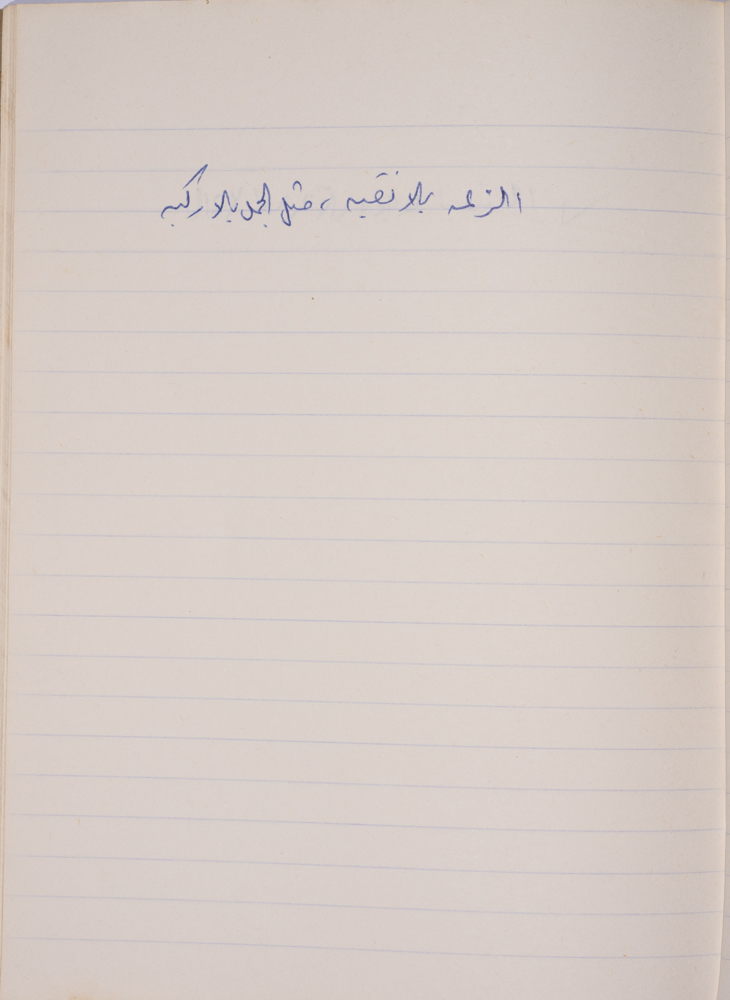 الزلمه بلا نقبه ، مثل الجمل بلا ركبه